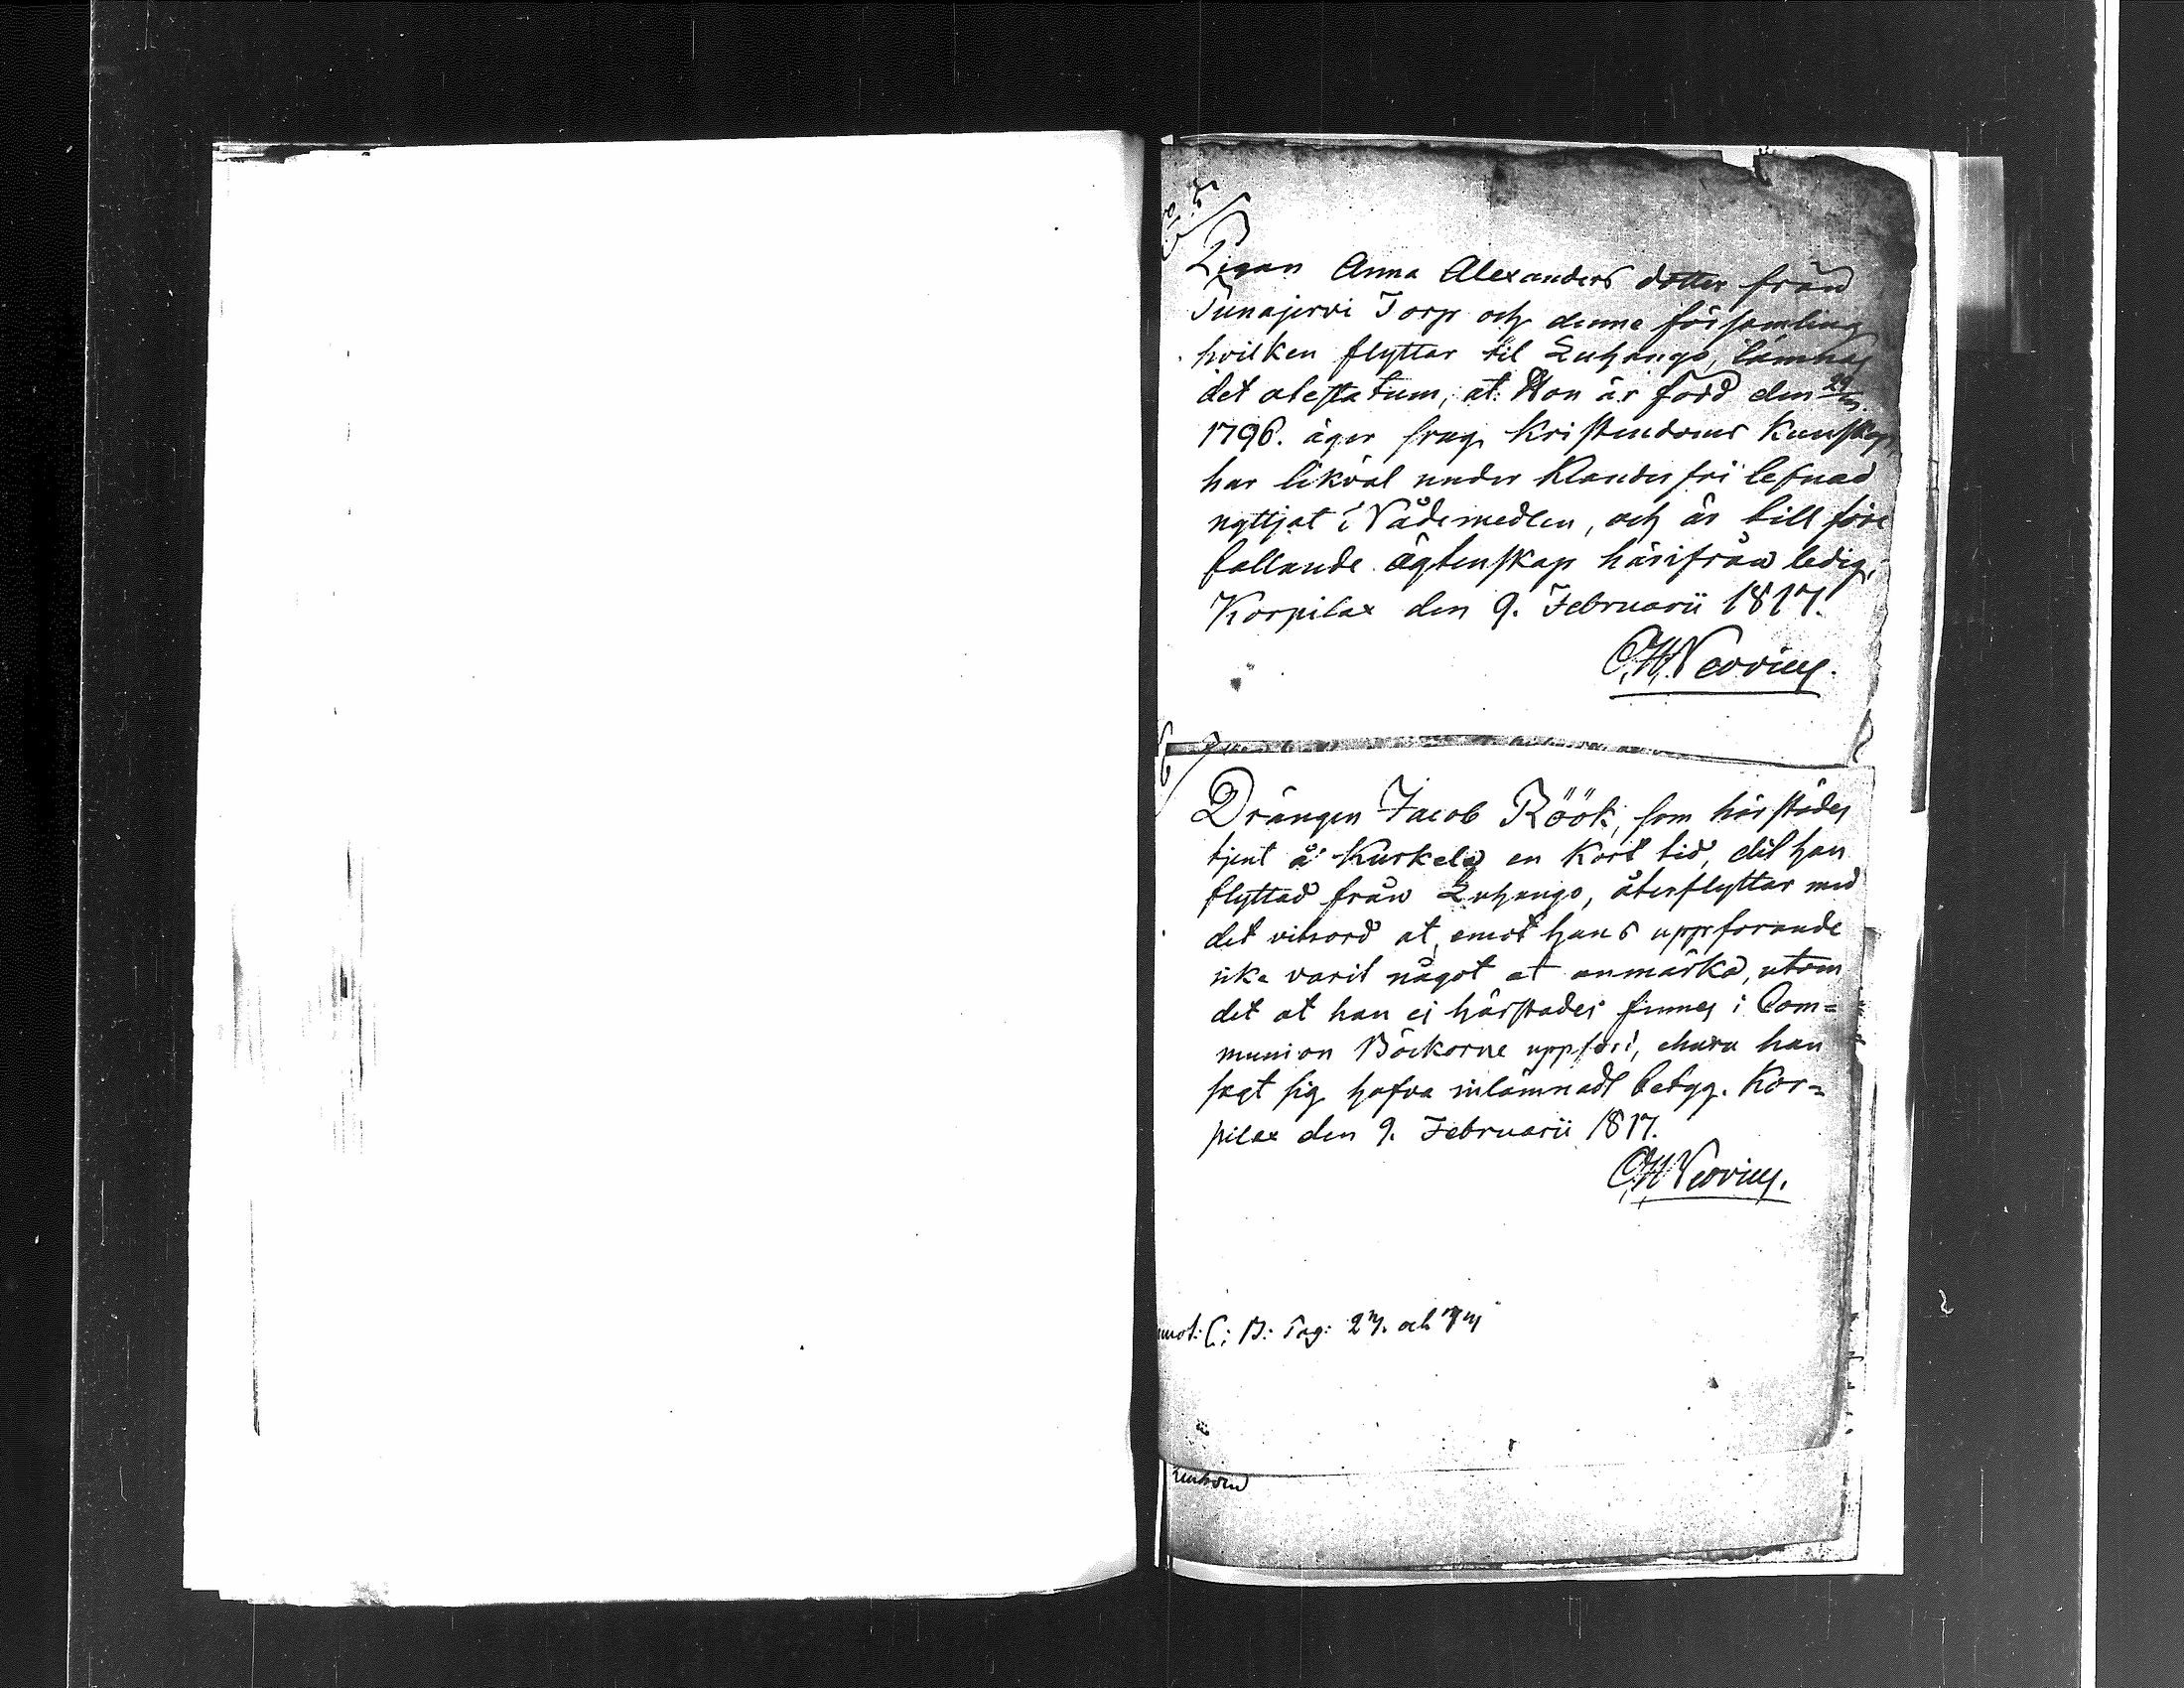 Pigan Anna Alexanders dotter från
Tunajervi Torp och denne församling
hvilken flyttar til Luhango, lämnas
det atestatum, at Hon är född den
1796. äger svag Kristendoms Kunskap,
har likväl under Klanderfri lefnad
nyttjat Nådemedlen, och är till före
fallande ägtenskap härifrån ledig.
Korpilax den 9. Februarii 1817.
C.H. Neovius.
Drängen Jacob Röök, som härstädes
tjent å Kurkela en Kort tid, dit han
flyttad från Luhango, återflyttar med
det vitsord at, emot hans uppforande
icke varit något at anmärka, utom
det at han ej härstädes finnes i Com=
munion Böckorne uppförd, ehuru han
sagt sig hafva inlämnadt betyg. Kor=
pilax den 9. Februarii 1817.
C.H. Neovius.
C: B: Pag: 27. och